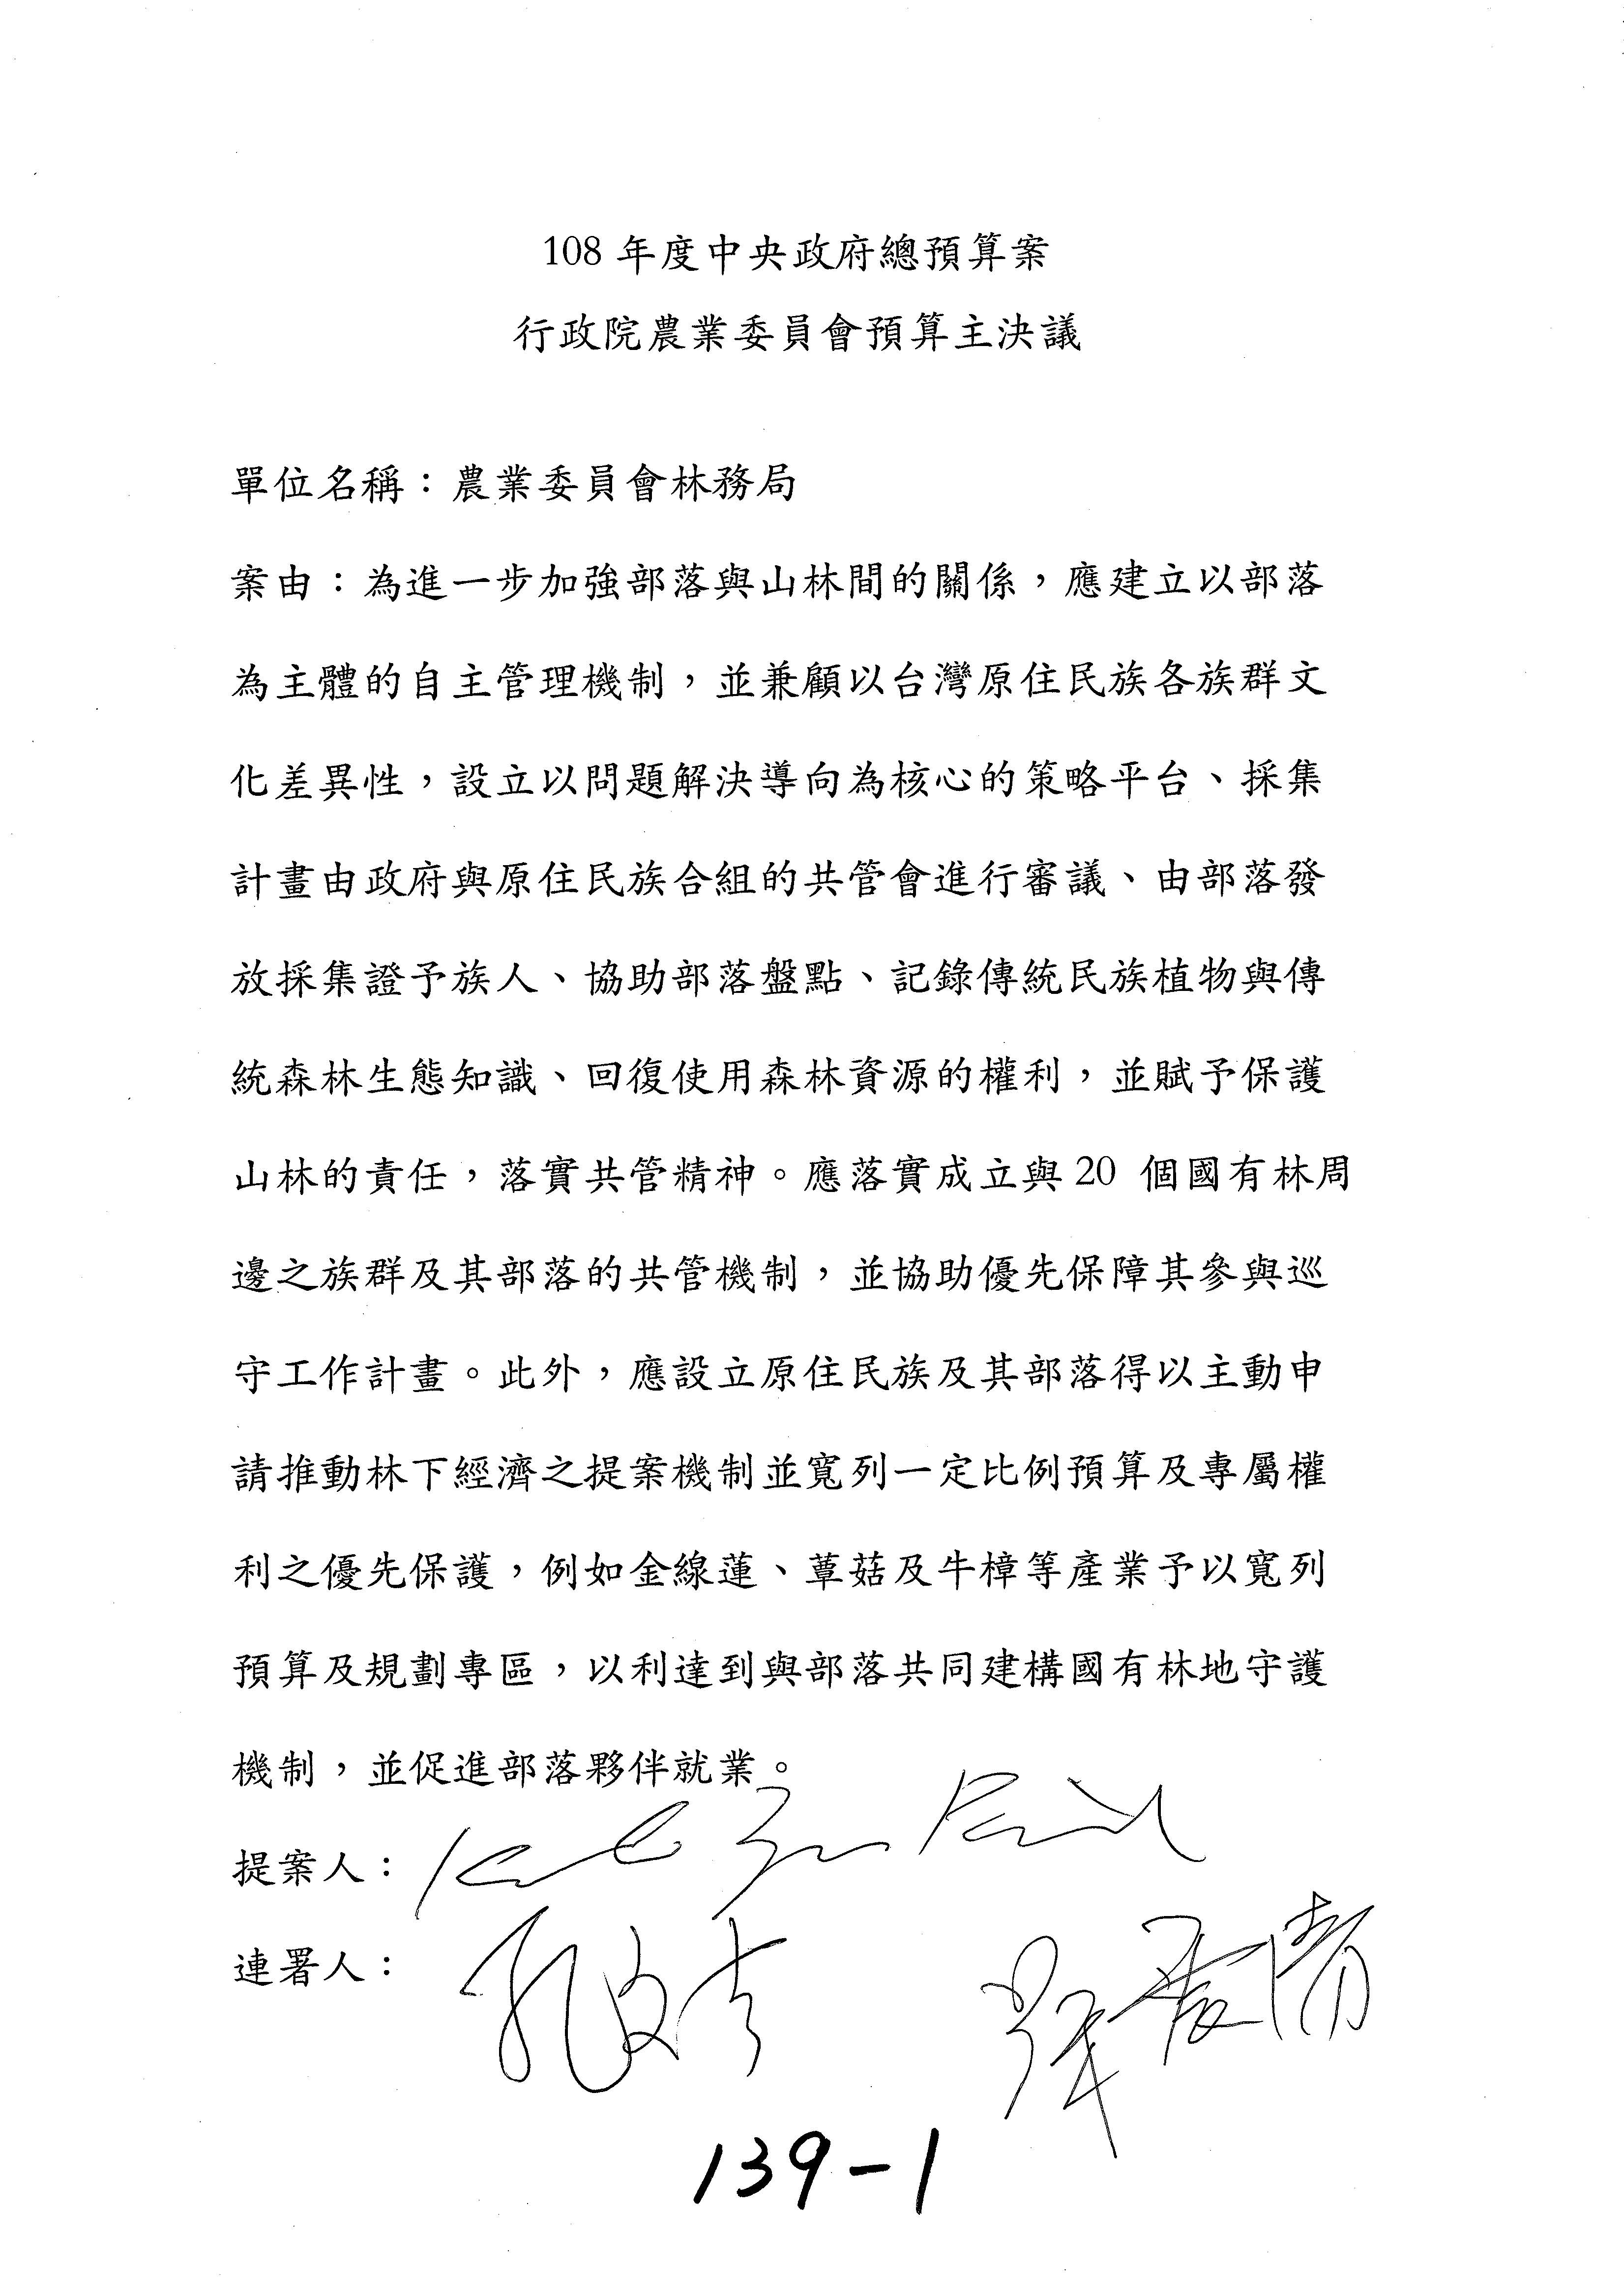 108 年度中央政府總預算案
行政院農業委員會預算主決議
單位名稱：農業委員會林務局
案由：為進一步加強部落與山林間的關係，應建立以部落
為主體的自主管理機制，並兼顧以台灣原住民族各族群文
化差異性，設立以問題解決導向為核心的策略平台、採集
計畫由政府與原住民族合組的共管會進行審議、由部落發
放採集證予族人、協助部落盤點、記錄傳統民族植物與傳
統森林生態知識、回復使用森林資源的權利，並賦予保護
山林的責任，落實共管精神。應落實成立與 20 個國有林周
邊之族群及其部落的共管機制，並協助優先保障其參與巡
守工作計畫。此外，應設立原住民族及其部落得以主動申
請推動林下經濟之提案機制並寬列一定比例預算及專屬權
利之優先保護，例如金線蓮、蕈菇及牛樟等產業予以寬列
預算及規劃專區，以利達到與部落共同建構國有林地守護
機制，並促進部落夥伴就業。
提案人：
連署人：孔文吉
139-1